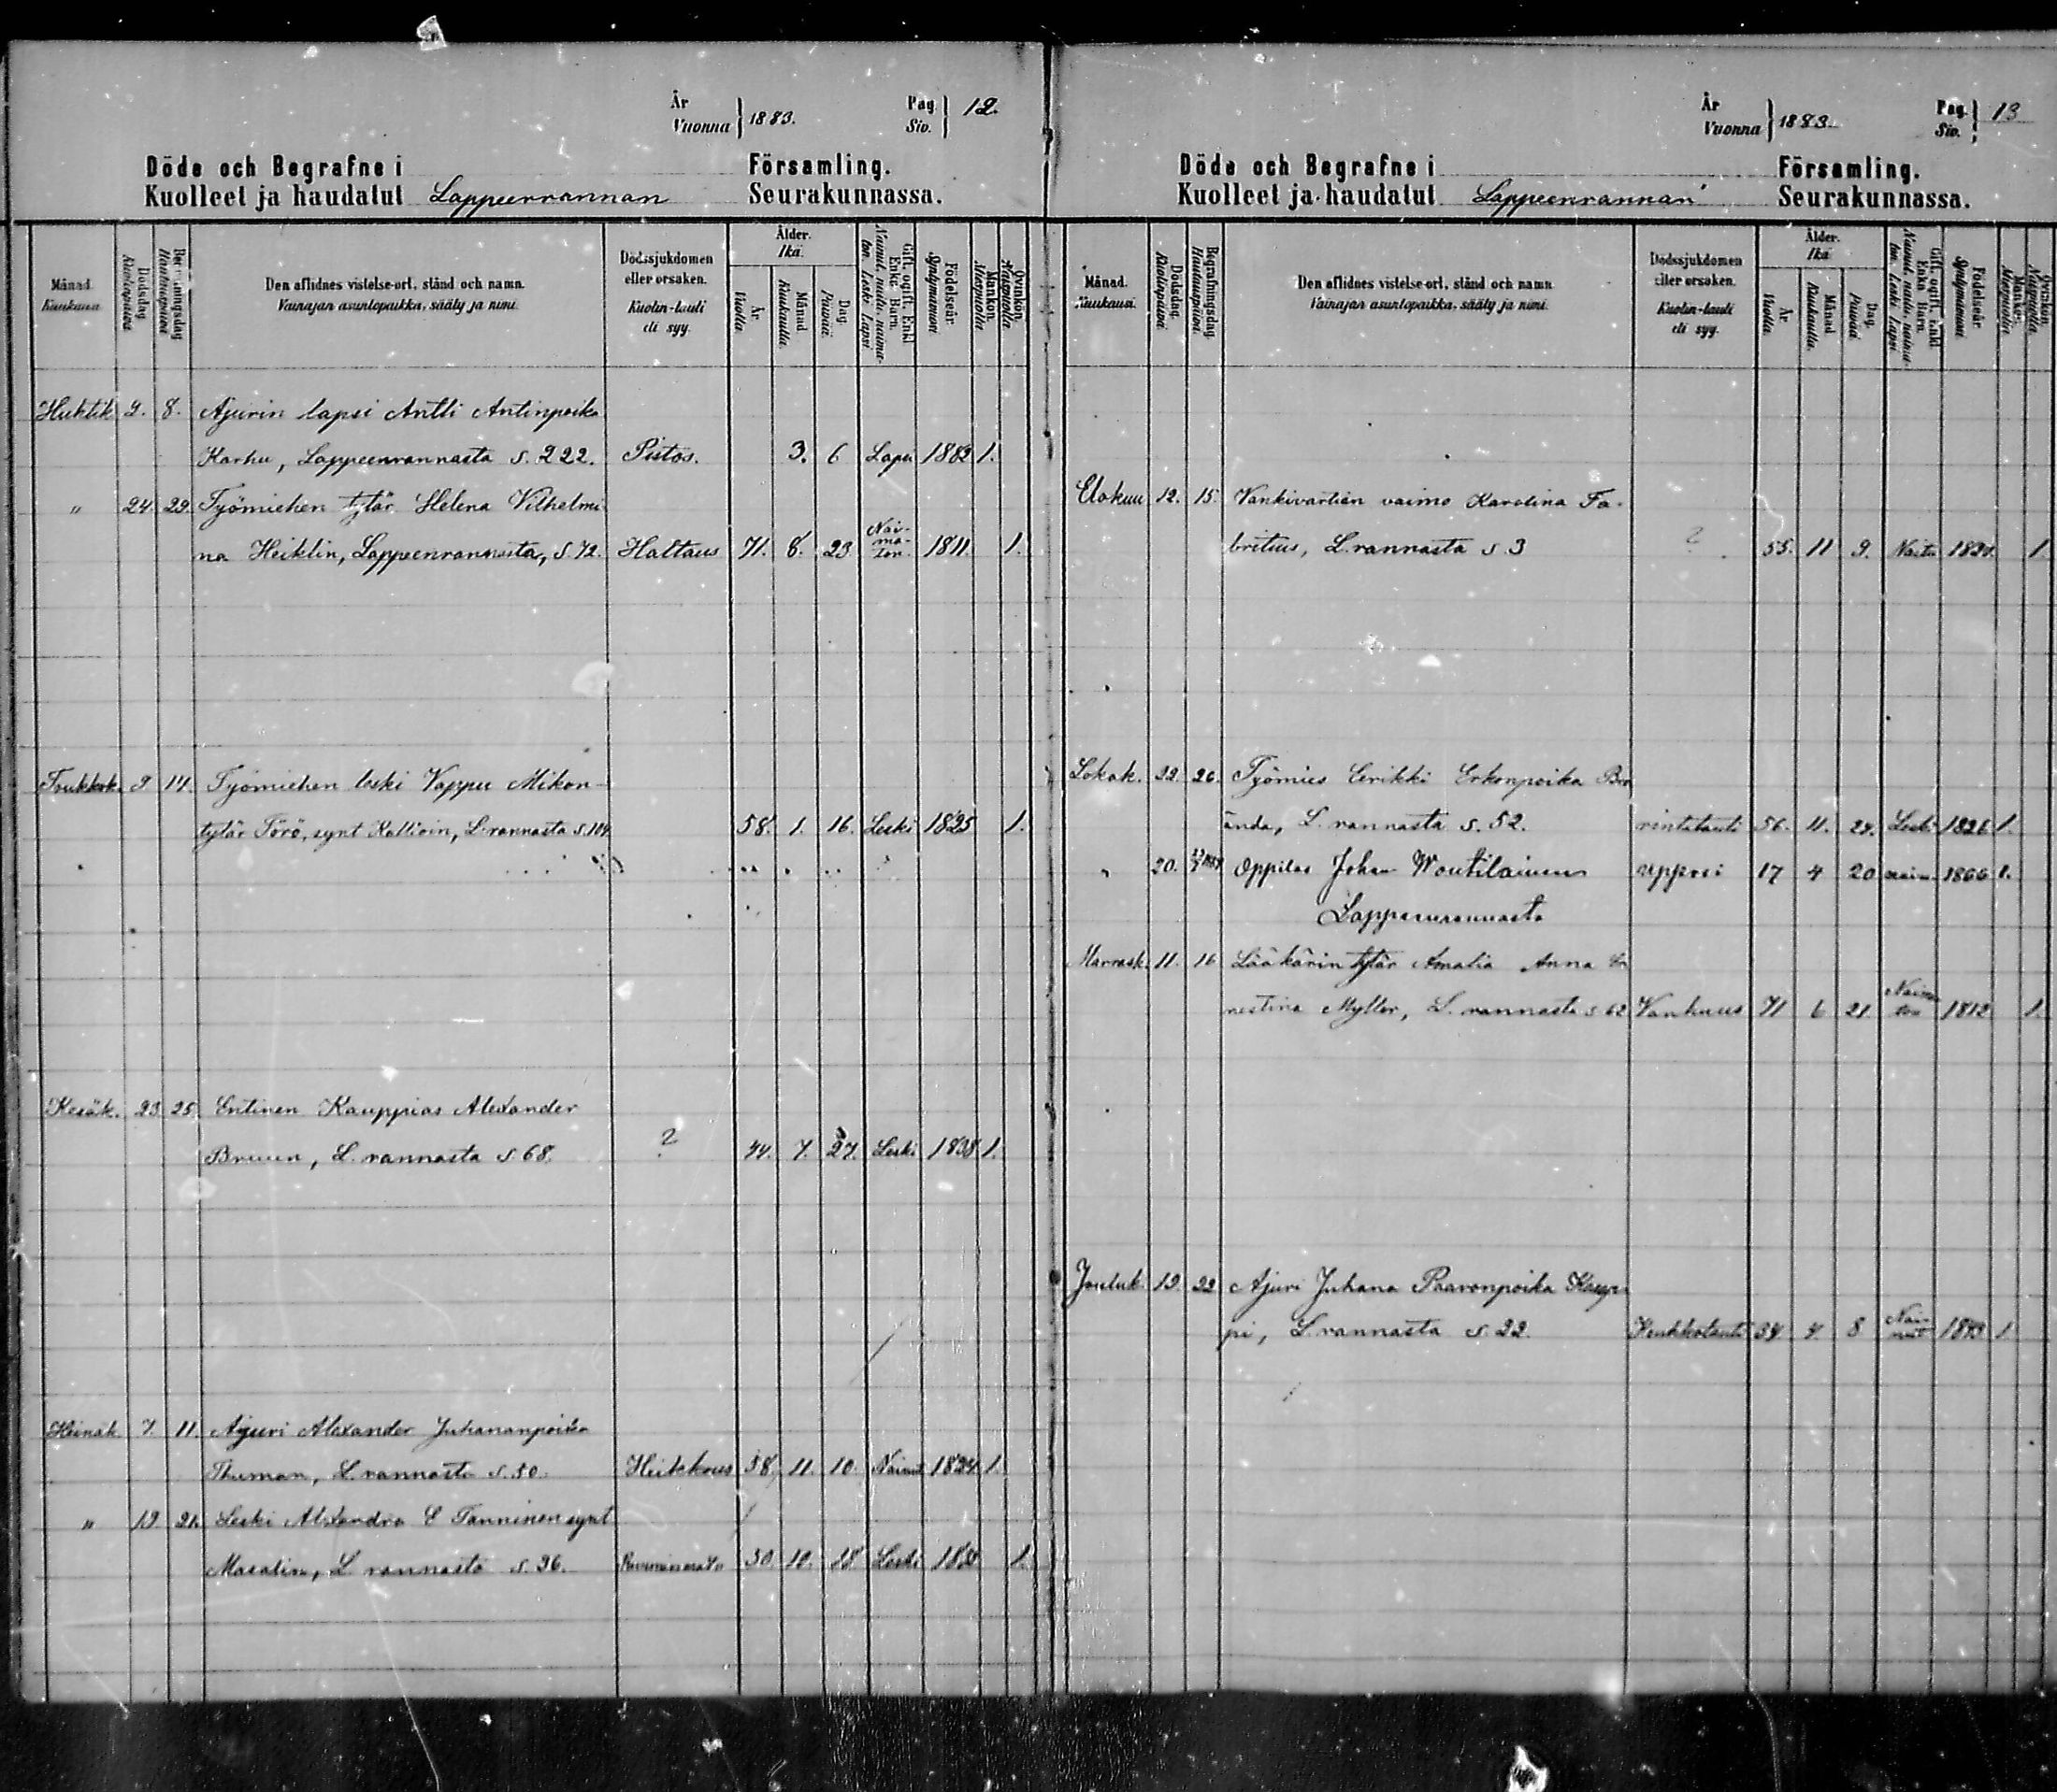 År
Vuonna } 1883.
Pag.
Siv. } 12.
Döde och Begrafne i Församling.
Kuolleet ja haudatut Lappeenrannan Seurakunnassa.
Månad. Kuukausi.
Dödsdag. Kuolinpäivä.
Begrafningsdag. Hautauspäivä.
Den aflidnes vistelse-ort, stånd och namn.
Vainajan asuntopaikka, sääty ja nimi.
Dödssjukdomen eller orsaken.
Kuolin-tauti eli syy.
Ålder. Ikä.
År. Vuotta.
Månad. Kuukautta.
Dag. Päivää.
Gift, ogift, Enkl. Enka. Barn.
Nainut, naitu, naimaton. Leski. Lapsi
Födelseår. Syntymävuosi.
Mankön. Miespuolia.
Qvinkön. Naispuolia.
Huhtik. 2. 8. Ajurin lapsi Antti Antinpoika
Karhu, Lappeenrannasta s. 222. Pistos. 3. 6 Lapsi 1882 1.
" 24. 29. Työmiehen tytär Helena Vilhelmi
na Heiklin, Lappeenrannasta, s. 72. Haltaus 71. 8. 23 Naimaton 1811. 1.
Toukok. 9 14. Työmiehen leski Vappu Mikon-
tytär Törö, synt Kallioin, L:rannasta s. 104. 58. 1. 16. Leski 1825 1.
Kesäk. 23. 25. Entinen Kauppias Alexander
Bruun, L. rannasta s. 68. ? 44. 7. 27. Leski 1838 1.
Heinäk. 7. 11. Ajuri Alexander Juhananpoika
Thuman, L. rannasta s. 50. Heikkous 58. 11. 10. Nainut 1824 1.
" 19 21. Leski Alexandra E Tanninen synt
Masalin, L rannasta s. 36. 50. 10. 18 Leski 1.
År
Vuonna } 1883.
Pag.
Siv. } 13
Döde och Begrafne i Församling.
Kuolleet ja haudatut Lappeenrannan Seurakunnassa.
Månad. Kuukausi.
Dödsdag. Kuolinpäivä.
Begrafningsdag. Hautauspäivä.
Den aflidnes vistelse-ort, stånd och namn.
Vainajan asuntopaikka, sääty ja nimi.
Dödssjukdomen eller orsaken.
Kuolin-tauti eli syy.
Ålder. Ikä.
År. Vuotta.
Månad. Kuukautta.
Dag. Päivää
Gift, ogift, Enkl. Enka. Barn.
Nainut, naitu, naimaton. Leski. Lapsi
Födelseår. Syntymävuosi.
Mankön. Miespuolia.
Qvinkön. Naispuolia.
Elokuu 12. 15. Vankivartian vaimo Karolina Fa-
britius, L. rannasta s. 3 ? 55. 11 9. Naitu 1.
Lokak. 22. 26. Työmies Eerikki Erkonpoika
ända, L. rannasta s. 52. rintatauti 56. 11. 24. Leski 1826 1.
" 20. Oppilas Johan Woutilainen 17 4 20 naim. 1866 1.
Lappeenrannasta
Marrask. 11. 16 Lääkärin tytär Amalia Anna Er
nestina Myller, L. rannasta s. 62 Vanhuus 71 6 21. Naimaton 1812 1.
Jouluk. 19. 22 Ajuri Juhana Paavonpoika Kaup-
pi, L. rannasta s. 22. Keuhkotauti 34 4 8 Nainut 1